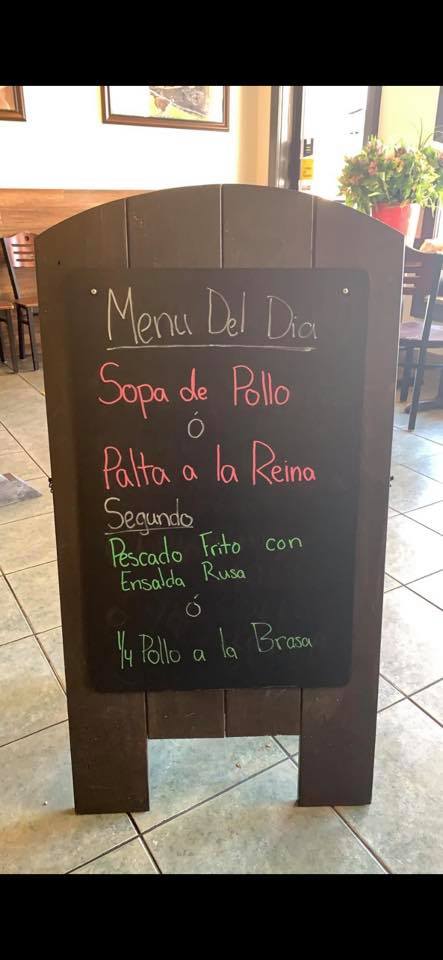 Menu Del Dia
Sopa de Pollo
Ó
Palta a la Reina
Segundo
Pescado Frito con
Ensalda Rusa
ó
1/4 Pollo a la Brasa